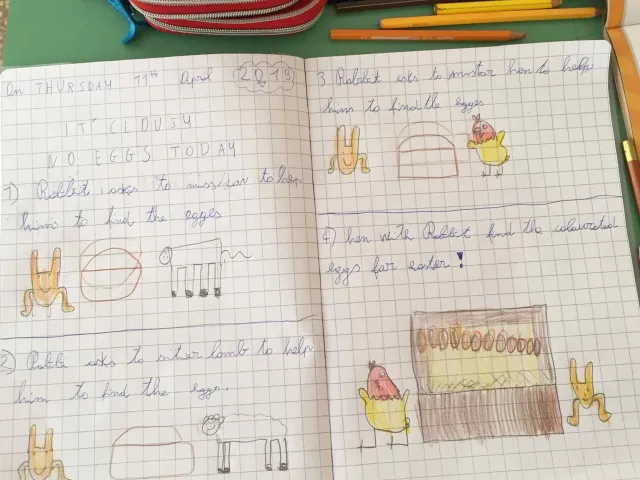 On THURSDAY 11th April 2019
IT' CLOUSY
NO EGGS TODAY
1) Rabbit asks to to help
him to find the egges
2) Rabbi asks to sister lamb to help
him to find the egges.
3 Rabbit asks to mister hen to help
him to find the egges
4) hen with Rabbit find the colourated
eggs for easter!